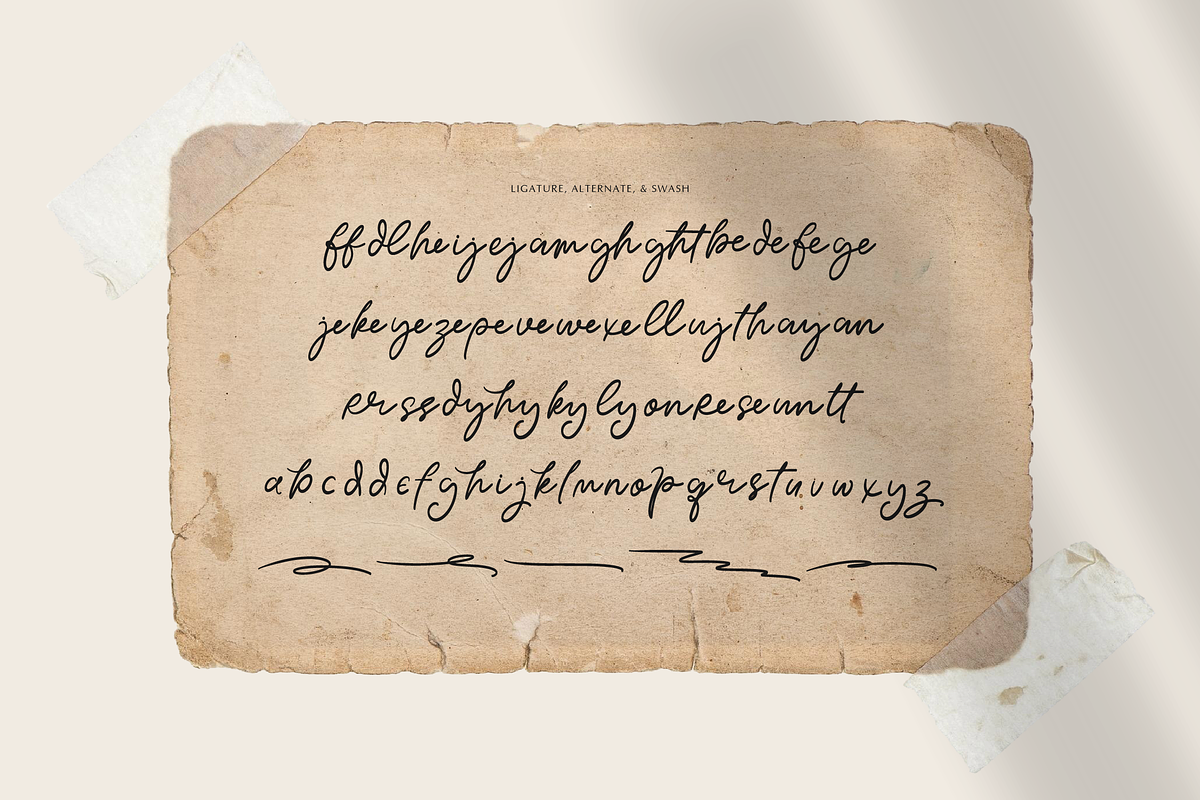 LIGATURE, ALTERNATE, & SWASH
ff dl he ij ej am gh ght be de fe ge
je ke ye ze pe ve we xe ll uj th ay an
er rs ss dy hy ky ly on re se un tt
a b c d d e f g h i j k l m n o p q r s t u v w x y z